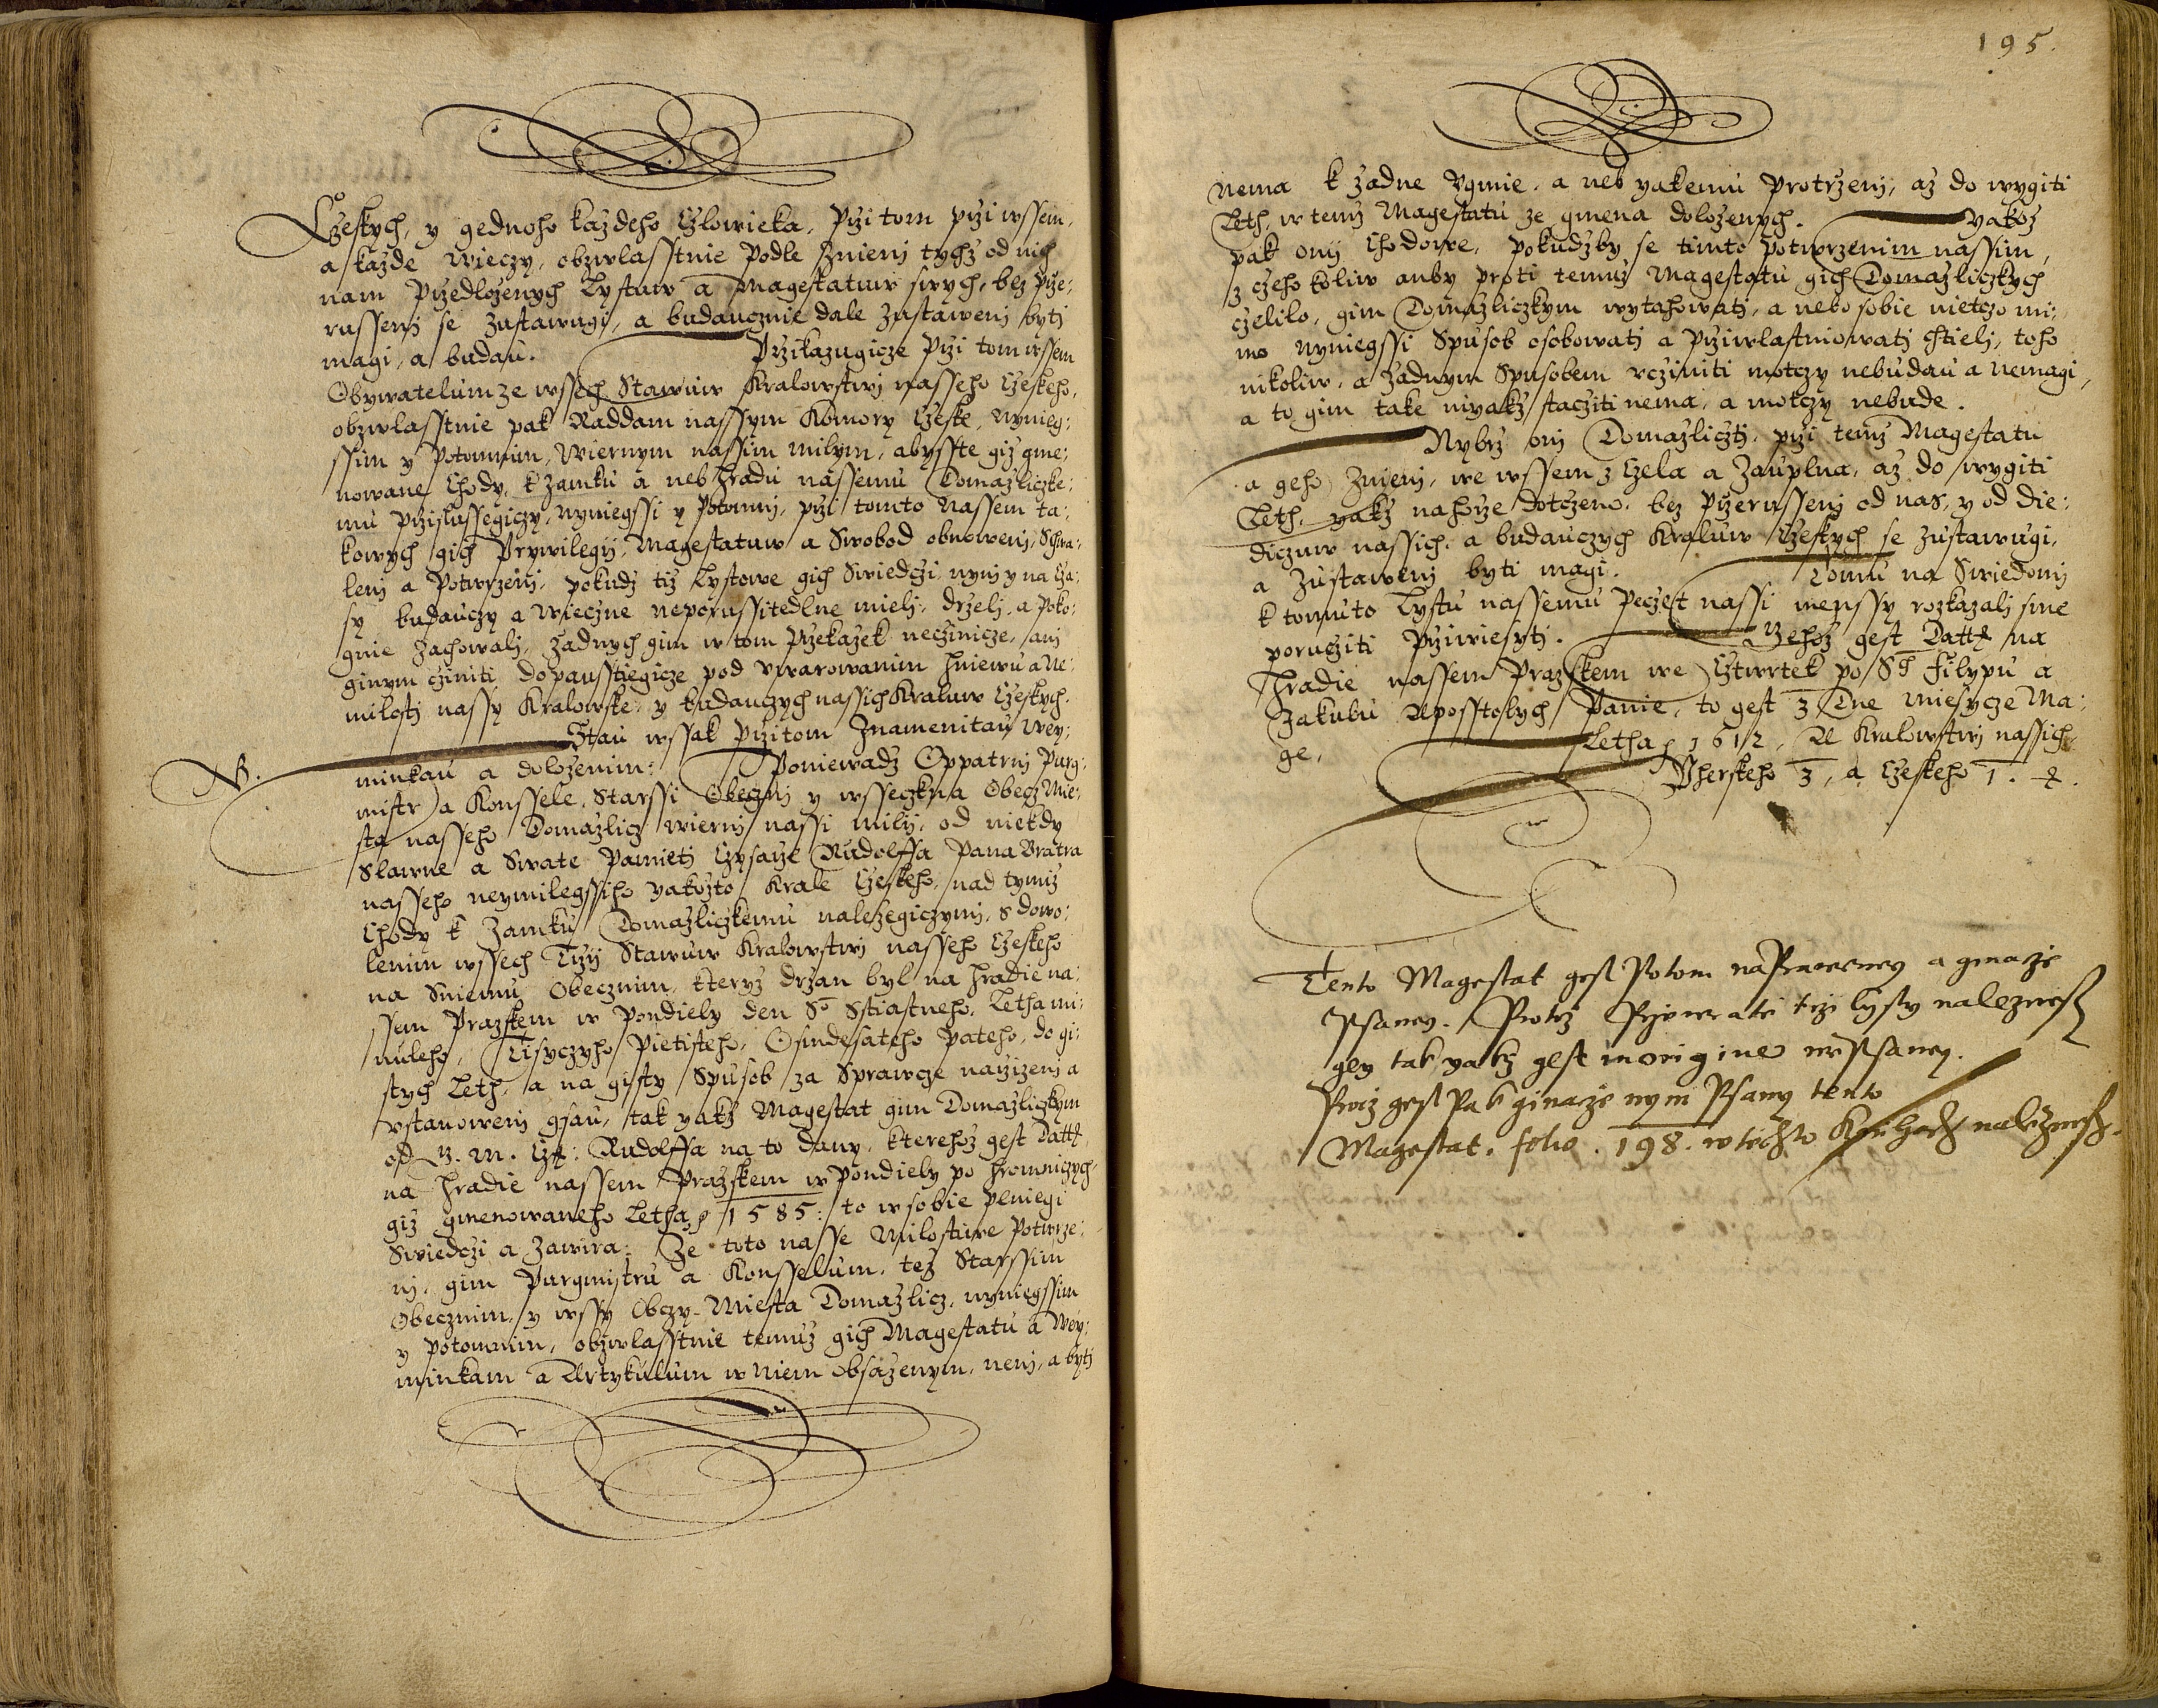 Czeskych, y gednoho kazdeho Czlowieka, przi tom przi wssem,
a kazde wieczy, obzwlasstnie podle Znienj tychz od nich
nam przedlozenych Lystuw a Magestatuw swych, bez prze:
russenj se zustawugi, a budaucznie dale zustawenj bytj
magi, a budau. Przikazugicze przi tom wssem
Obywatelum ze wssech Stawuw Kralowstwj nasseho Czeskeho,
obzwlasstnie pak Raddam nassym Komory Czeske, nynieg:
ssim y potomnim, Wiernym nassim milym, abysste giz gme:
nowane Chody, k zamku a neb hradu nassemu Domazliczke:
mu przislussegiczy, nyniegssi y potomnj, przi tomto nassem ta:
kowych gich Prywilegij, Magestatuw a Swobod obnowenj, Schwa:
lenj a Potwrzenj, pokudz tiz Lystowe gich Swiedczi, nynj y na cza:
sy budauczy a wieczne neporussitedlne mielj, drzelj, a poko:
gnie zachowalj, zadnych gim w tom przekazek neczinicze, anj
ginym cziniti dopausstiegicze pod vwarowanim hniewu a Ne:
milostj nassy Kralowske, y budauczych nassich Kraluw Czeskych.
Stau wssak przitom Znamenitau wey:
NB. minkau a dolozenim: Poniewadz Oppatrnj Purg:
mistr a Konssele, Starssi Obecznj y wsseczkna Obecz Mie:
sta nasseho Domazlicz wiernj nassi milij, od niekdy
Slawne a Swate Pamieti Czysarze Rudolffa Pana Bratra
nasseho neymilegssiho yakozto Krale Czeskeho, nad tymiz
Chody k Zamku Domazliczkemu nalezegiczymj, s dowo:
lenim wssech Trzij Stawuw Kralowstwj nasseho Czeskeho
na Sniemu Obecznim, kteryz drzan byl na hradie na:
ssem Prazskem w Pondiely den So Sstiastneho, Letha mi:
nuleho, Tisyczyho Pietisteho, Osmdesateho Pateho, do gi:
stych Leth, a na gisty Spusob za Sprawcze narzizenj a
vstanowenj gsau, tak yakz Magestat gim Domazliczkym
od J. M. Cz: Rudolffa na to dany, kterehoz gest Datt
na hradie nassem Prazskem w Pondiely po hromniczych
giz gmenowaneho Letha 1585: to w sobie plniegi
Swiedczi a zawira: Ze toto nasse Milostiwe Potwrze:
nj, gim Purgmistru a Konsselum, tez Starssim
Obecznim, y wssy Obczy Miesta Domazlicz, nyniegssim
y potomnim, obzwlasstnie temuz gich Magestatu a Wey:
minkam a Artykulum w niem obsazenym, nenj, a bytj
195.
nema k zadne vgmie, a neb yakemu protrzenj, az do wygiti
Leth, w temz Magestatu ze gmena dolozenych. Yakoz
pak onij Chodowe, pokudzby se timto potwrzenim nassim,
z czehokoliw anby proti temuz Magestatu gich Domazliczkych
czelilo, gim Domazliczkym wytahowati, a nebo sobie nietczo mi:
mo nyniegssi Spusob osobowati a prziwlastniowati chtielj, toho
nikoliw, a zadnym Spusobem vcziniti motczy nebudau a nemagi,
a to gim take niyakz staczitj nema, a motczy nebude.
Nybrz onj Domazliczti, przi temz Magestatu
a geho Znienj, we wssem z Czela a Zauplna, az do wygiti
Leth, yakz nahorze dotczeno, bez przerussenj od nas, y od die:
dicznw nassich, a budauczych Kraluw Czeskych se zustawugi,
a zustawenj byti magi. Tomu na Swiedomj
k tomuto Lystu nassemu Peczet nassi menssy rozkazalj sme
porucziti prziwiesyti. Gehoz gest Datt na
Hradie nassem Prazskem we Cztwrtek po Sо Filypu a
Jakubu Aposstolych Panie, to gest 3 Dne miesycze Ma:
ge, Letha 1612, A Kralowstwj nassich
Vherskeho 3, a Czeskeho 1.
Tento Magestat gest Potom napraweney a ginacze
Psaney. Protoz Przywrate trzi lysty naleznesß
gey tak yakz gest in origine wepsaney.
Kniz gest Pak ginacze nym Psany tento
Magestat. folio. 198. w tiechto Knihach naleznesß.